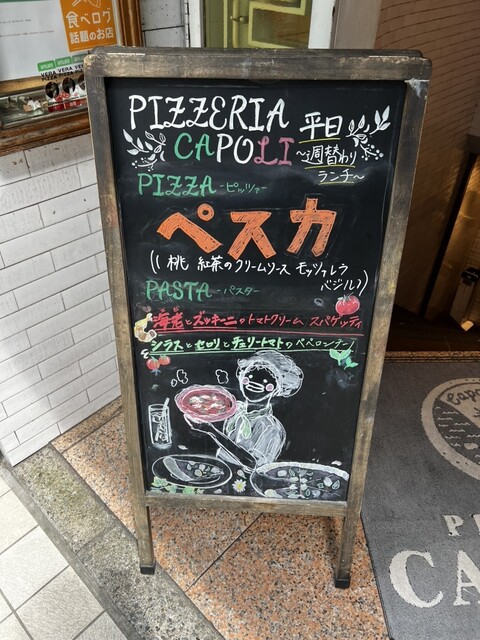 食べログ
話題のお店
VERA PIZZA
PIZZERIA
CAPOLI
平日
～週替わり
ランチ～
PIZZA -ピッツァ-
ペスカ
(桃 紅茶のクリームソース モッツァレラ
バジル)
PASTA -パスタ-
海老とズッキーニのトマトクリーム スパゲッティ
シラスとセロリとチェリートマトのペペロンチーノ
P
CA